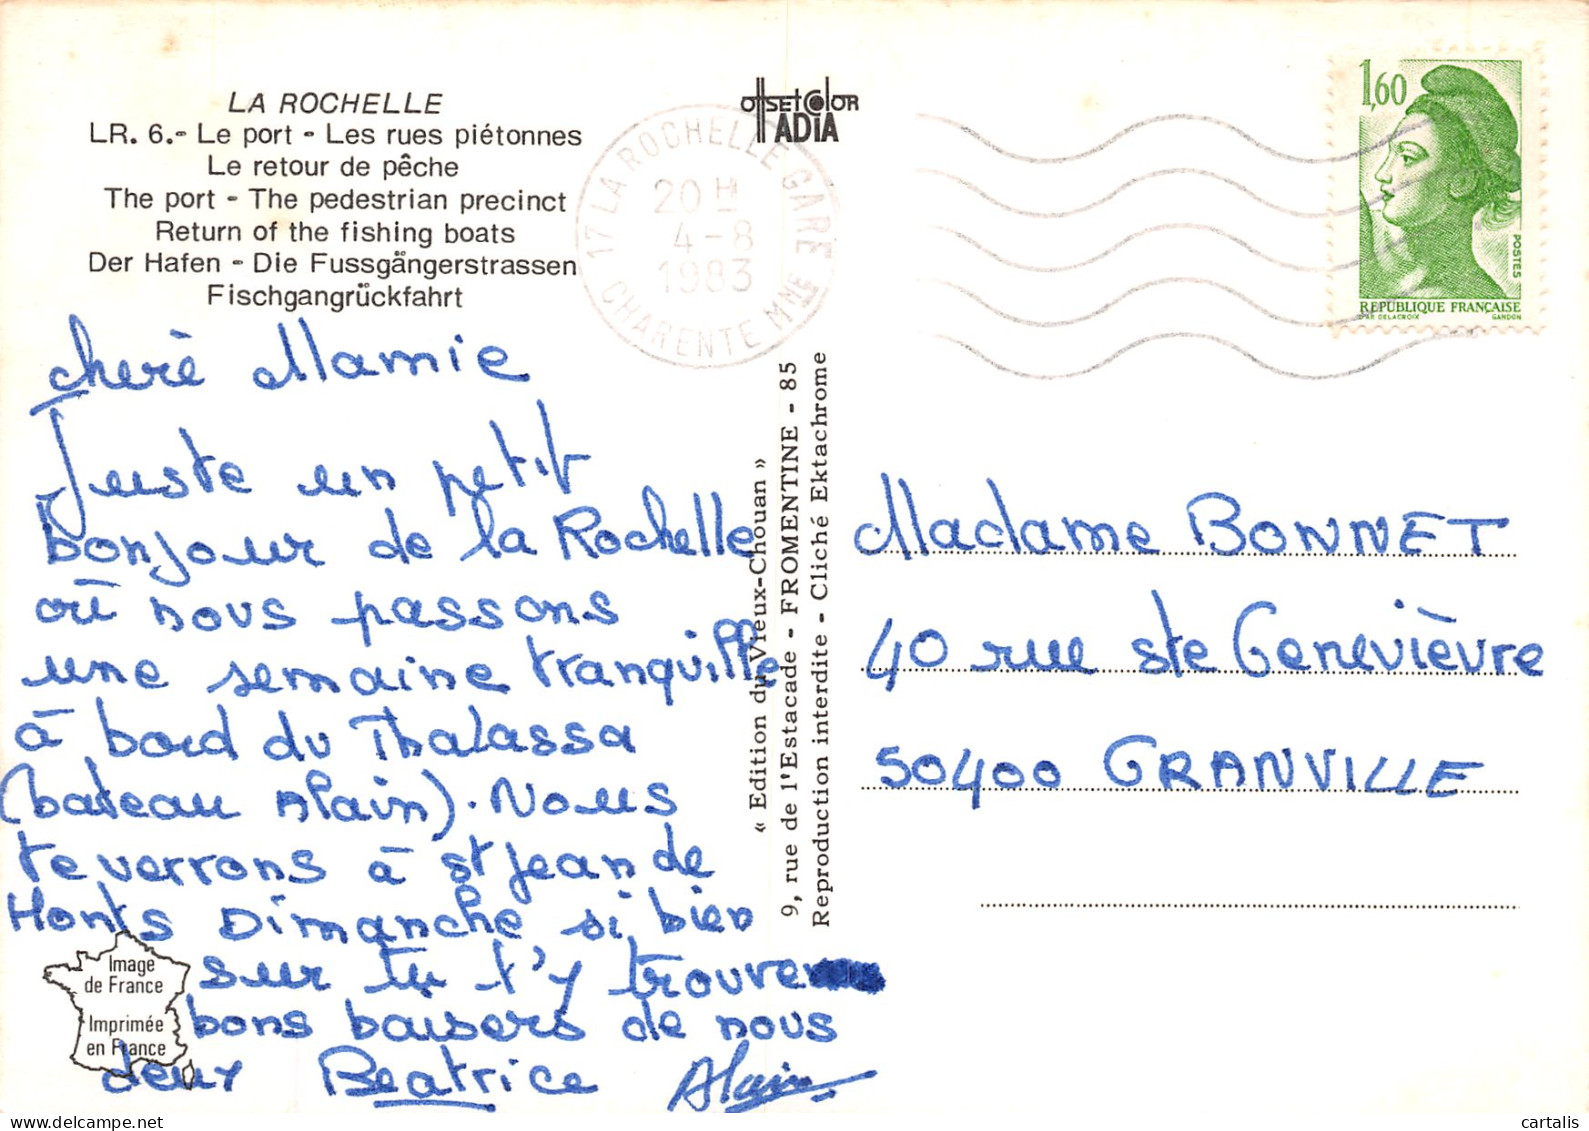 LA ROCHELLE
LR. 6.- Le port - Les rues piétonnes
Le retour de pêche
The port - The pedestrian precinct
Return of the fishing boats
Der Hafen - Die Fussgängerstrassen
Fischgangrückfahrt
OffSET COLOR
ADIA
17 LA ROCHELLE GARE
20 H
4-8
1983
CHARENTE MME
1,60
POSTES
REPUBLIQUE FRANÇAISE
D'AP. DELACROIX GANDON
cherè Mamie
Juste un petit
bonjour de la Rochelle
où nous passons
une semaine tranquille
à bord du Thalassa
(bateau Alain). Nous
te verrons à st jean de
Monts Dimanche si bien
sur tu t'y trouve
bons baisers de nous
deux Beatrice Alain
Image
de France
Imprimée
en France
« Edition du Vieux-Chouan »
9, rue de l'Estacade - FROMENTINE - 85
Reproduction interdite - Cliché Ektachrome
Madame BONNET
40 rue ste Genevièvre
50400 GRANVILLE
cartalis